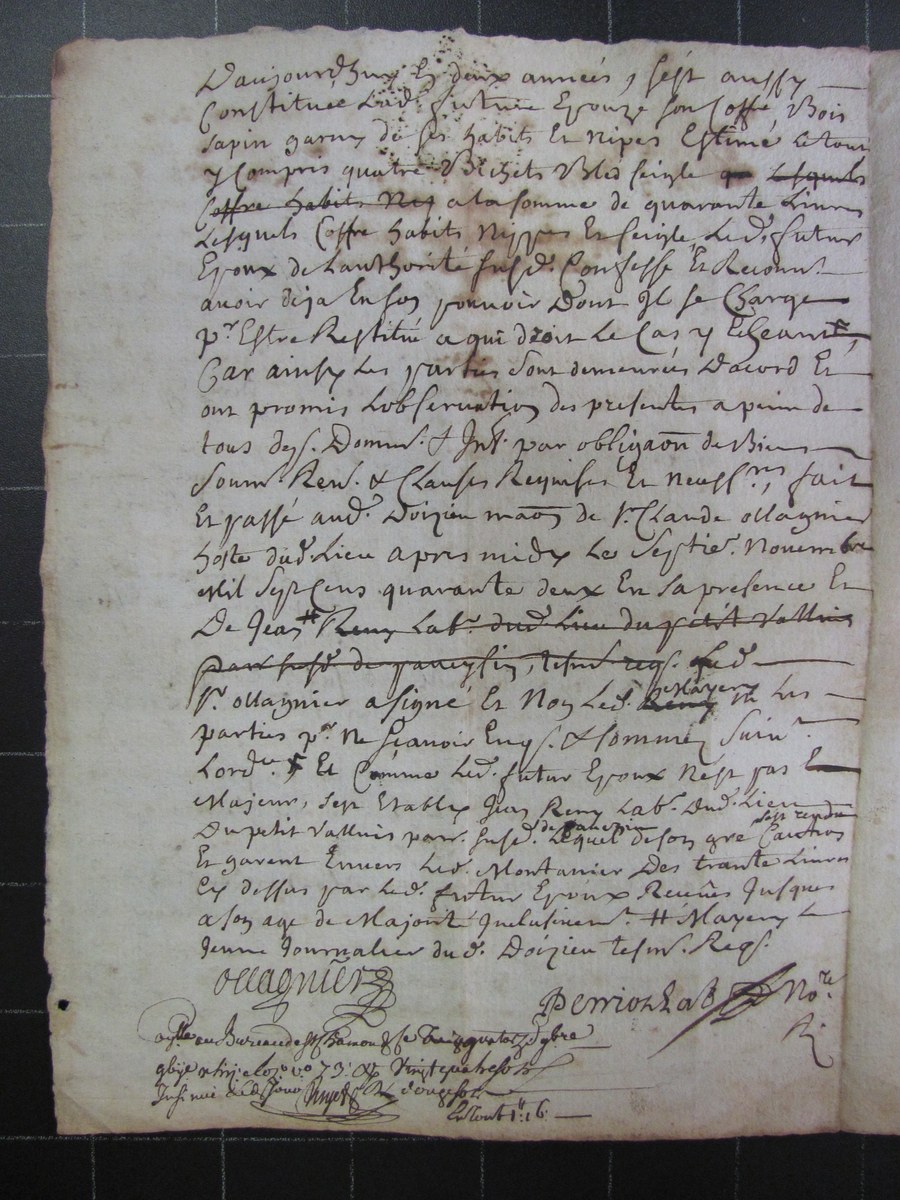 Daujourdhuy En deux années, s'est aussy
Constituée Lad. future Epouze son Coffre, Bois
sapin garny de ses habits Et nipes Estimé Le tout
y Compris quatre Bichets Bled seigle Lesquels
Coffre habits Nip a la somme de quarante Livres
Lesquels Coffre habits Nippes Et seigle Led. futur
Epoux de Lauthorité susd. Confesse Et Reconnt
avoir deja En son pouvoir Dont Il se Charge
pr. Estre Restitué a qui droit Le Cas y Echeant
Car ainsy Les parties sont demeurées Dacord Et
ont promis Lobservation des presentes a peine de
tous desp. Domm. & Int. par obligaon de Biens
soum. Ren. & Clauses Requises Et necess.res, fait
Et passé aud. Doizieu maon de Sr. Claude ollagnier
hoste dud. Lieu apres midy Le Septie. Novembre
Mil Sept Cens quarante deux En sa presence Et
De Jean # Remy Lab. dud. Lieu du petit Valluis
par. susd. de paveysin, tesm. reqs. Led.
Sr. ollagnier a signé Et Non Led. Remy Mayery ni Les
parties pr. Ne sçavoir Enqs. & sommé suivt
Lord.ce Et Comme Led. futur Epoux N'est pas
Majeur, s'est Etably Jean Remy Lab. dud. Lieu
Du petit Valluis parr. susd. de pavezin Lequel de son gré s'est rendu Caution
Et garent Envers Led. Montanier Des trante Livres
Cy dessus par Led. futur Epoux Receües Jusques
a son age de Majorité Inclusivemt. # Mayery Le
Jeune Journalier dud. Doizieu tesm. Reqs.
ollagnier
Perriolat No.re
au Bureau de St Chamond Le
Vingt quatre sols
Le tout 1# 16